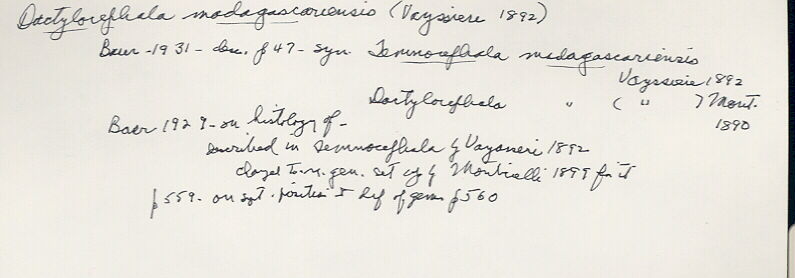 Dactylocephala madagascariensis (Vayssiere 1892)
Baer -1931- desc. p 47- syn. Temnocephala madagascariensis
Vayssiere 1892
Dactylocephala " ( " ) Mont.
1890
Baer 1929- on histology of -
described in Temnocephala by Vayssiere 1892
to n. gen. set up by Monticelli 1899 for it
p 559- on syst. position & def of genus p 560